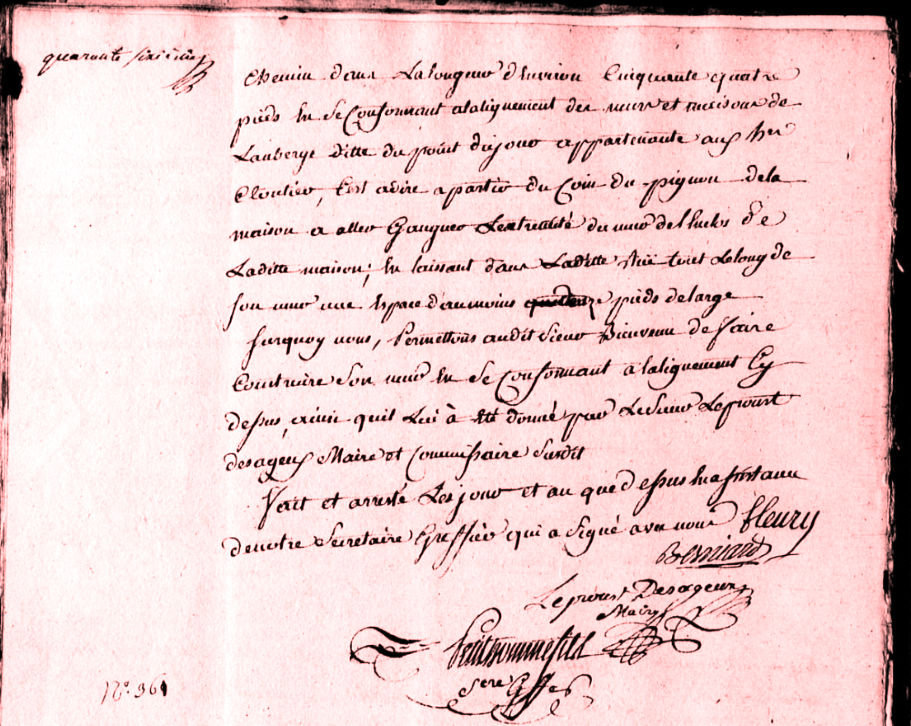 quarante sixieme
Chemin dans La longeur d'Environ Cinquante quatre
pieds En Se Conformant a lalignement des murs et maisons de
Lauberge ditte du point dujour appartenante aux hers
Cloutier, C'est adire apartir du Coin du pignon dela
maison a aller Gaugner Lextremité du mur de l'Enclos de
Laditte maison; En laissant dans Laditte Rüe tout Lelong de
son mur une Espace d'au moins pieds de large
Surquoy nous, Permettons audit Sieur Bienvenu de Faire
Construire Son mur En Se Conformant a lalignement Cy
dessus, ainsi quil Lui à Eté donné par Le Sieur Leproust
desageux Maire et Commissaire Susdit
Fait et arresté Les jour et an que dessus En assistance
denotre Secretaire Greffier qui a Signé avec nous fleury
Bernard
Leproust Desageux
Maire
petitbonnefils
Secre Gffer
N°. 361